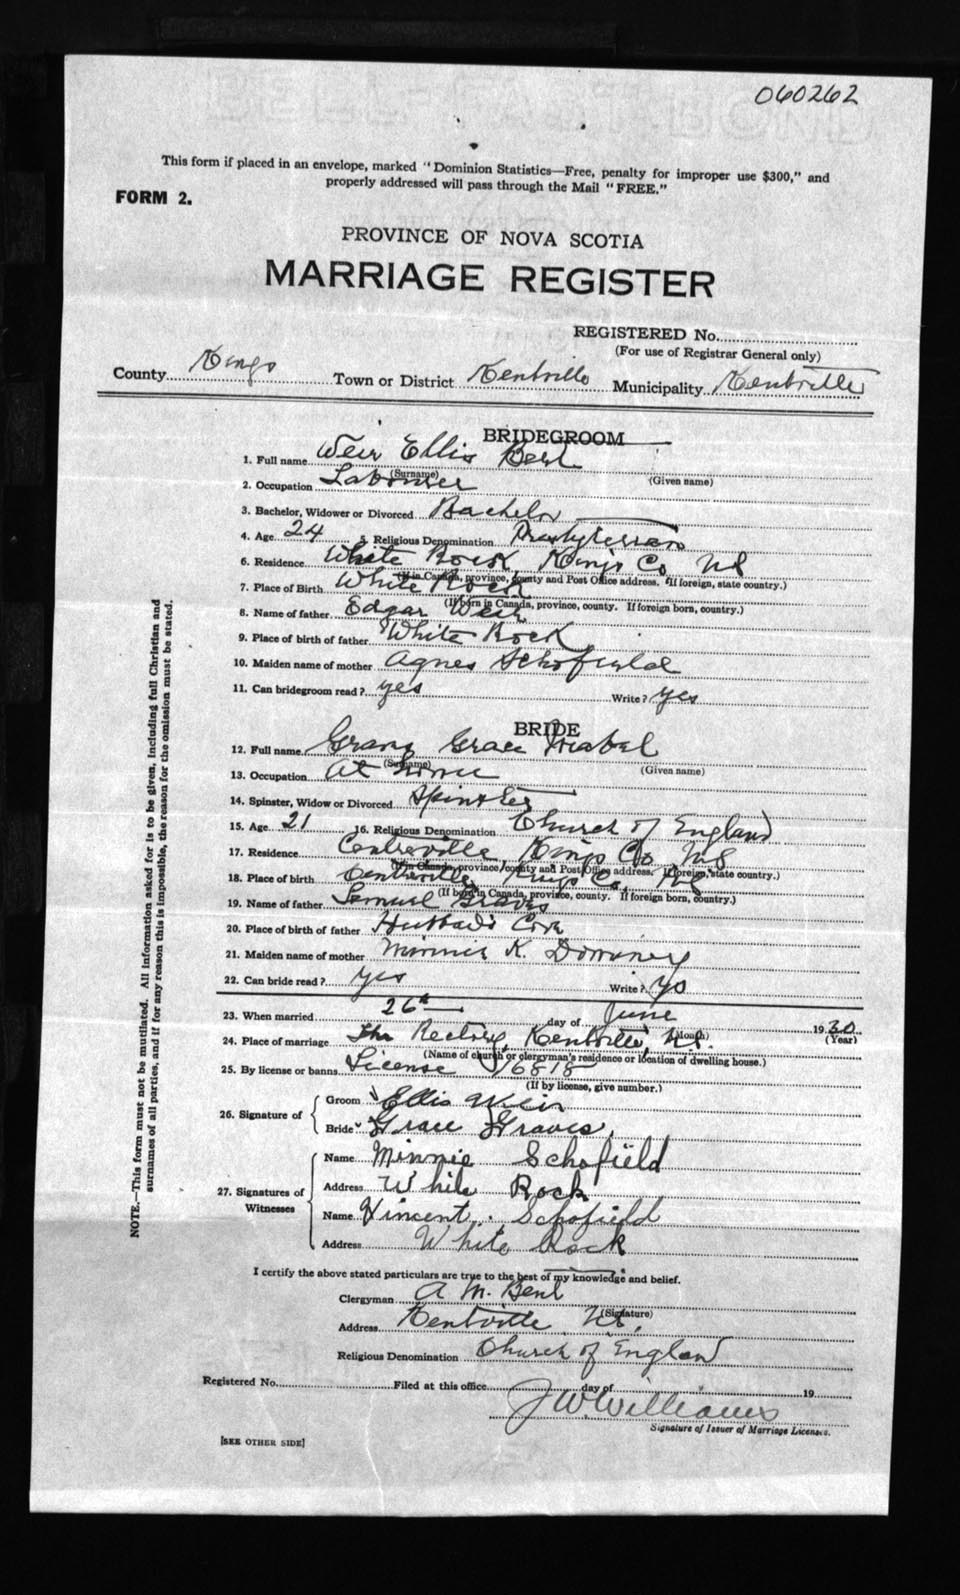 060262
This form if placed in an envelope, marked "Dominion Statistics—Free, penalty for improper use $300," and
properly addressed will pass through the Mail "FREE."
FORM 2.
PROVINCE OF NOVA SCOTIA
MARRIAGE REGISTER
REGISTERED No.
(For use of Registrar General only)
County Kings Town or District Kentville Municipality Kentville
BRIDEGROOM
1. Full name Weir Ellis
(Surname) (Given name)
2. Occupation Labourer
3. Bachelor, Widower or Divorced Bachelor
4. Age 24 5. Religious Denomination Presbyterian
6. Residence White Rock, Kings Co NS
(If in Canada, province, county and Post Office address. If foreign, state country.)
7. Place of Birth White Rock
(If born in Canada, province, county. If foreign born, country.)
8. Name of father Edgar Weir
9. Place of birth of father White Rock
10. Maiden name of mother Agnes Schofield
11. Can bridegroom read? yes Write? yes
BRIDE
12. Full name Graves Grace Mabel
(Surname) (Given name)
13. Occupation At home
14. Spinster, Widow or Divorced Spinster
15. Age 21 16. Religious Denomination Church of England
17. Residence Centreville, Kings Co. NS
(If in Canada, province, county and Post Office address. If foreign, state country.)
18. Place of birth Centreville, Kings Co. NS
(If born in Canada, province, county. If foreign born, country.)
19. Name of father Samuel Graves
20. Place of birth of father Cove
21. Maiden name of mother Minnie K.
22. Can bride read? yes Write? yes
23. When married 26th day of June 1930
(Month) (Year)
24. Place of marriage The Rectory, Kentville, N.S.
(Name of church or clergyman's residence or location of dwelling house.)
25. By license or banns License 16818
(If by license, give number.)
26. Signature of
Groom Ellis Weir
Bride Grace Graves
27. Signatures of Witnesses
Name Minnie Schofield
Address White Rock
Name Vincent Schofield
Address White Rock
I certify the above stated particulars are true to the best of my knowledge and belief.
Clergyman A. M. Bent
(Signature)
Address Kentville NS.
Religious Denomination Church of England
Registered No. Filed at this office day of 19
J W Williams
Signature of Issuer of Marriage Licenses.
[SEE OTHER SIDE]
NOTE.—This form must not be mutilated. All information asked for is to be given, including full Christian and
surnames of all parties, and if for any reason this is impossible, the reason for the omission must be stated.